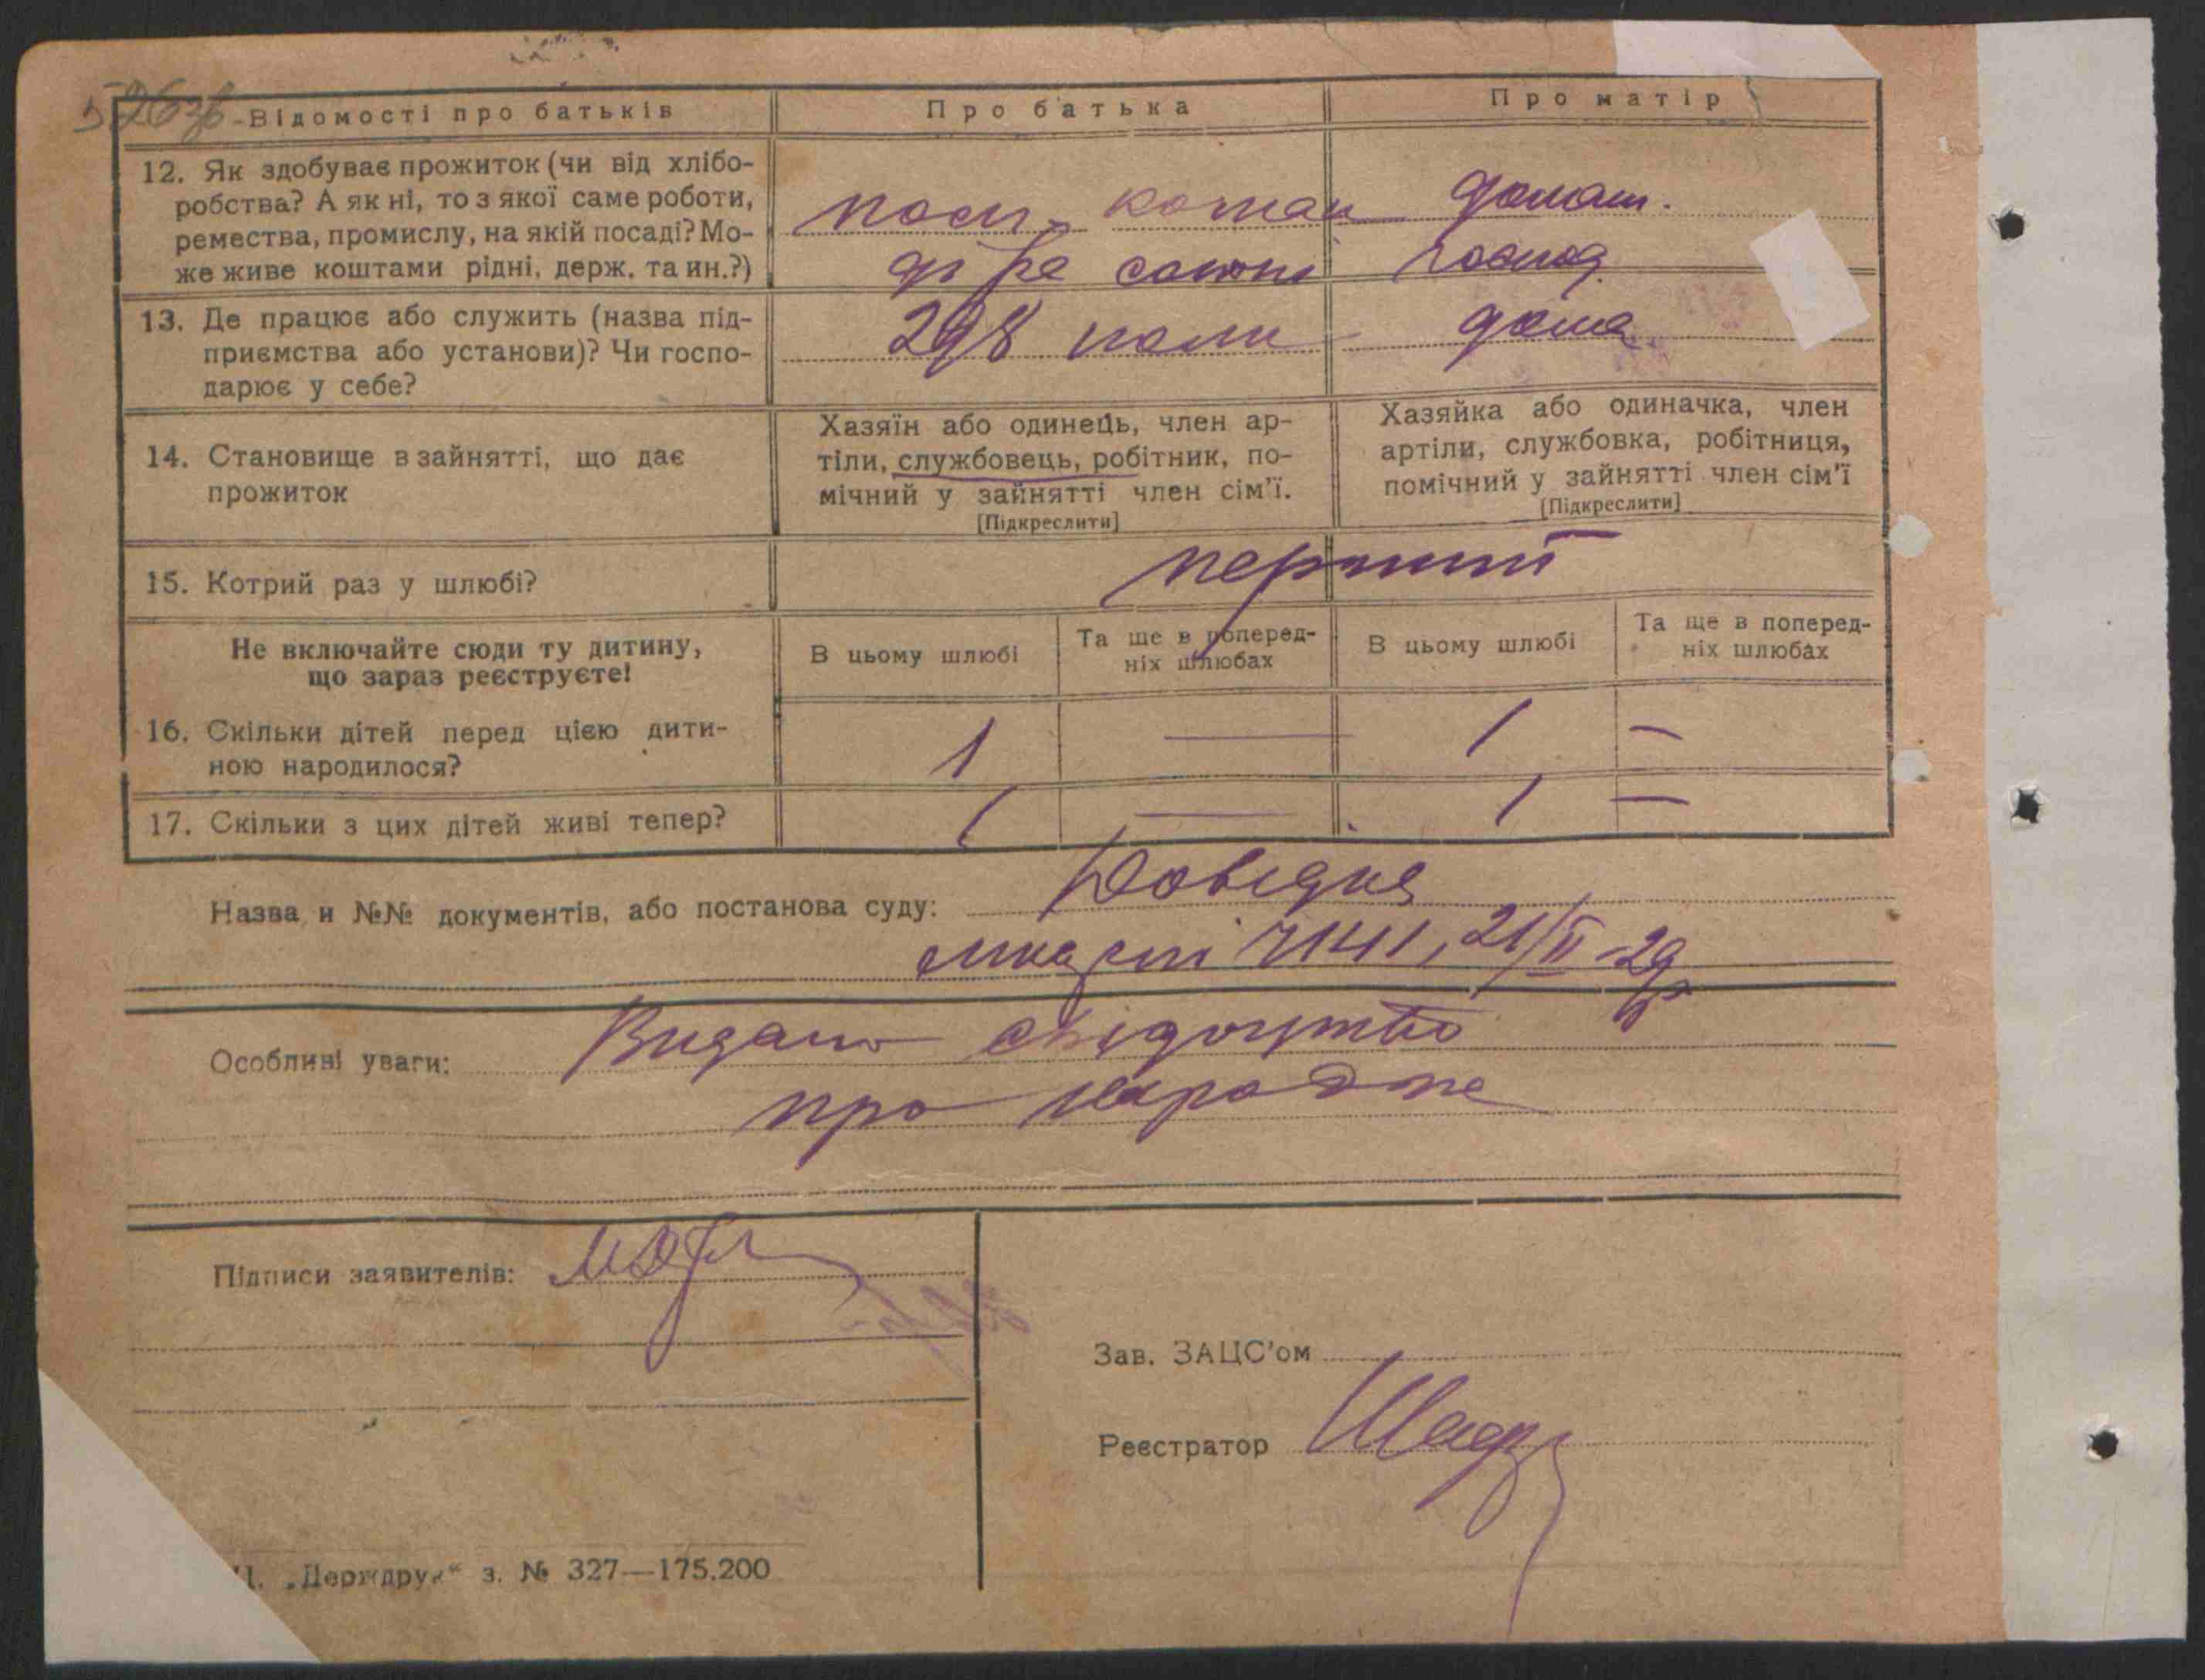 526зв
Відомості про батьків
Про батька
Про матір
12. Як здобуває прожиток (чи від хлібо-
робства? А як ні, то з якої саме роботи,
ремества, промислу, на якій посаді? Мо-
же живе коштами рідні, держ. та ин.?)
домаш.
сотні
господ.
13. Де працює або служить (назва під-
приємства або установи)? Чи госпо-
дарює у себе?
298 полк
дома
14. Становище в зайнятті, що дає
прожиток
Хазяїн або одинець, член ар-
тіли, службовець, робітник, по-
мічний у зайнятті член сім'ї.
[Підкреслити]
Хазяйка або одиначка, член
артіли, службовка, робітниця,
помічний у зайнятті член сім'ї
[Підкреслити]
15. Котрий раз у шлюбі?
перший
Не включайте сюди ту дитину,
що зараз реєструєте!
В цьому шлюбі
Та ще в поперед-
ніх шлюбах
В цьому шлюбі
Та ще в поперед-
ніх шлюбах
16. Скільки дітей перед цією дити-
ною народилося?
1 — 1 —
17. Скільки з цих дітей живі тепер?
1 — 1 —
Назва и №№ документів, або постанова суду: Довідка
21/II-29р
Особливі уваги: Видано свідоцтво
про народже
Підписи заявителів:
Зав. ЗАЦС'ом
Реєстратор
"Держдрук" з. № 327—175.200